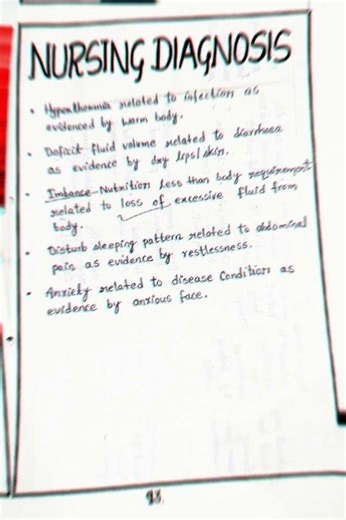 NURSING DIAGNOSIS
• Hyperthermia related to infection as
evidenced by warm body.
• Deficit fluid volume related to diarrhoea
as evidence by dry lips/skin.
• Imbance Nutrition less than body requirement
related to loss of excessive fluid from
body.
• Disturb sleeping pattern related to abdominal
pain as evidence by restlessness.
• Anxiety related to disease condition as
evidence by anxious face.